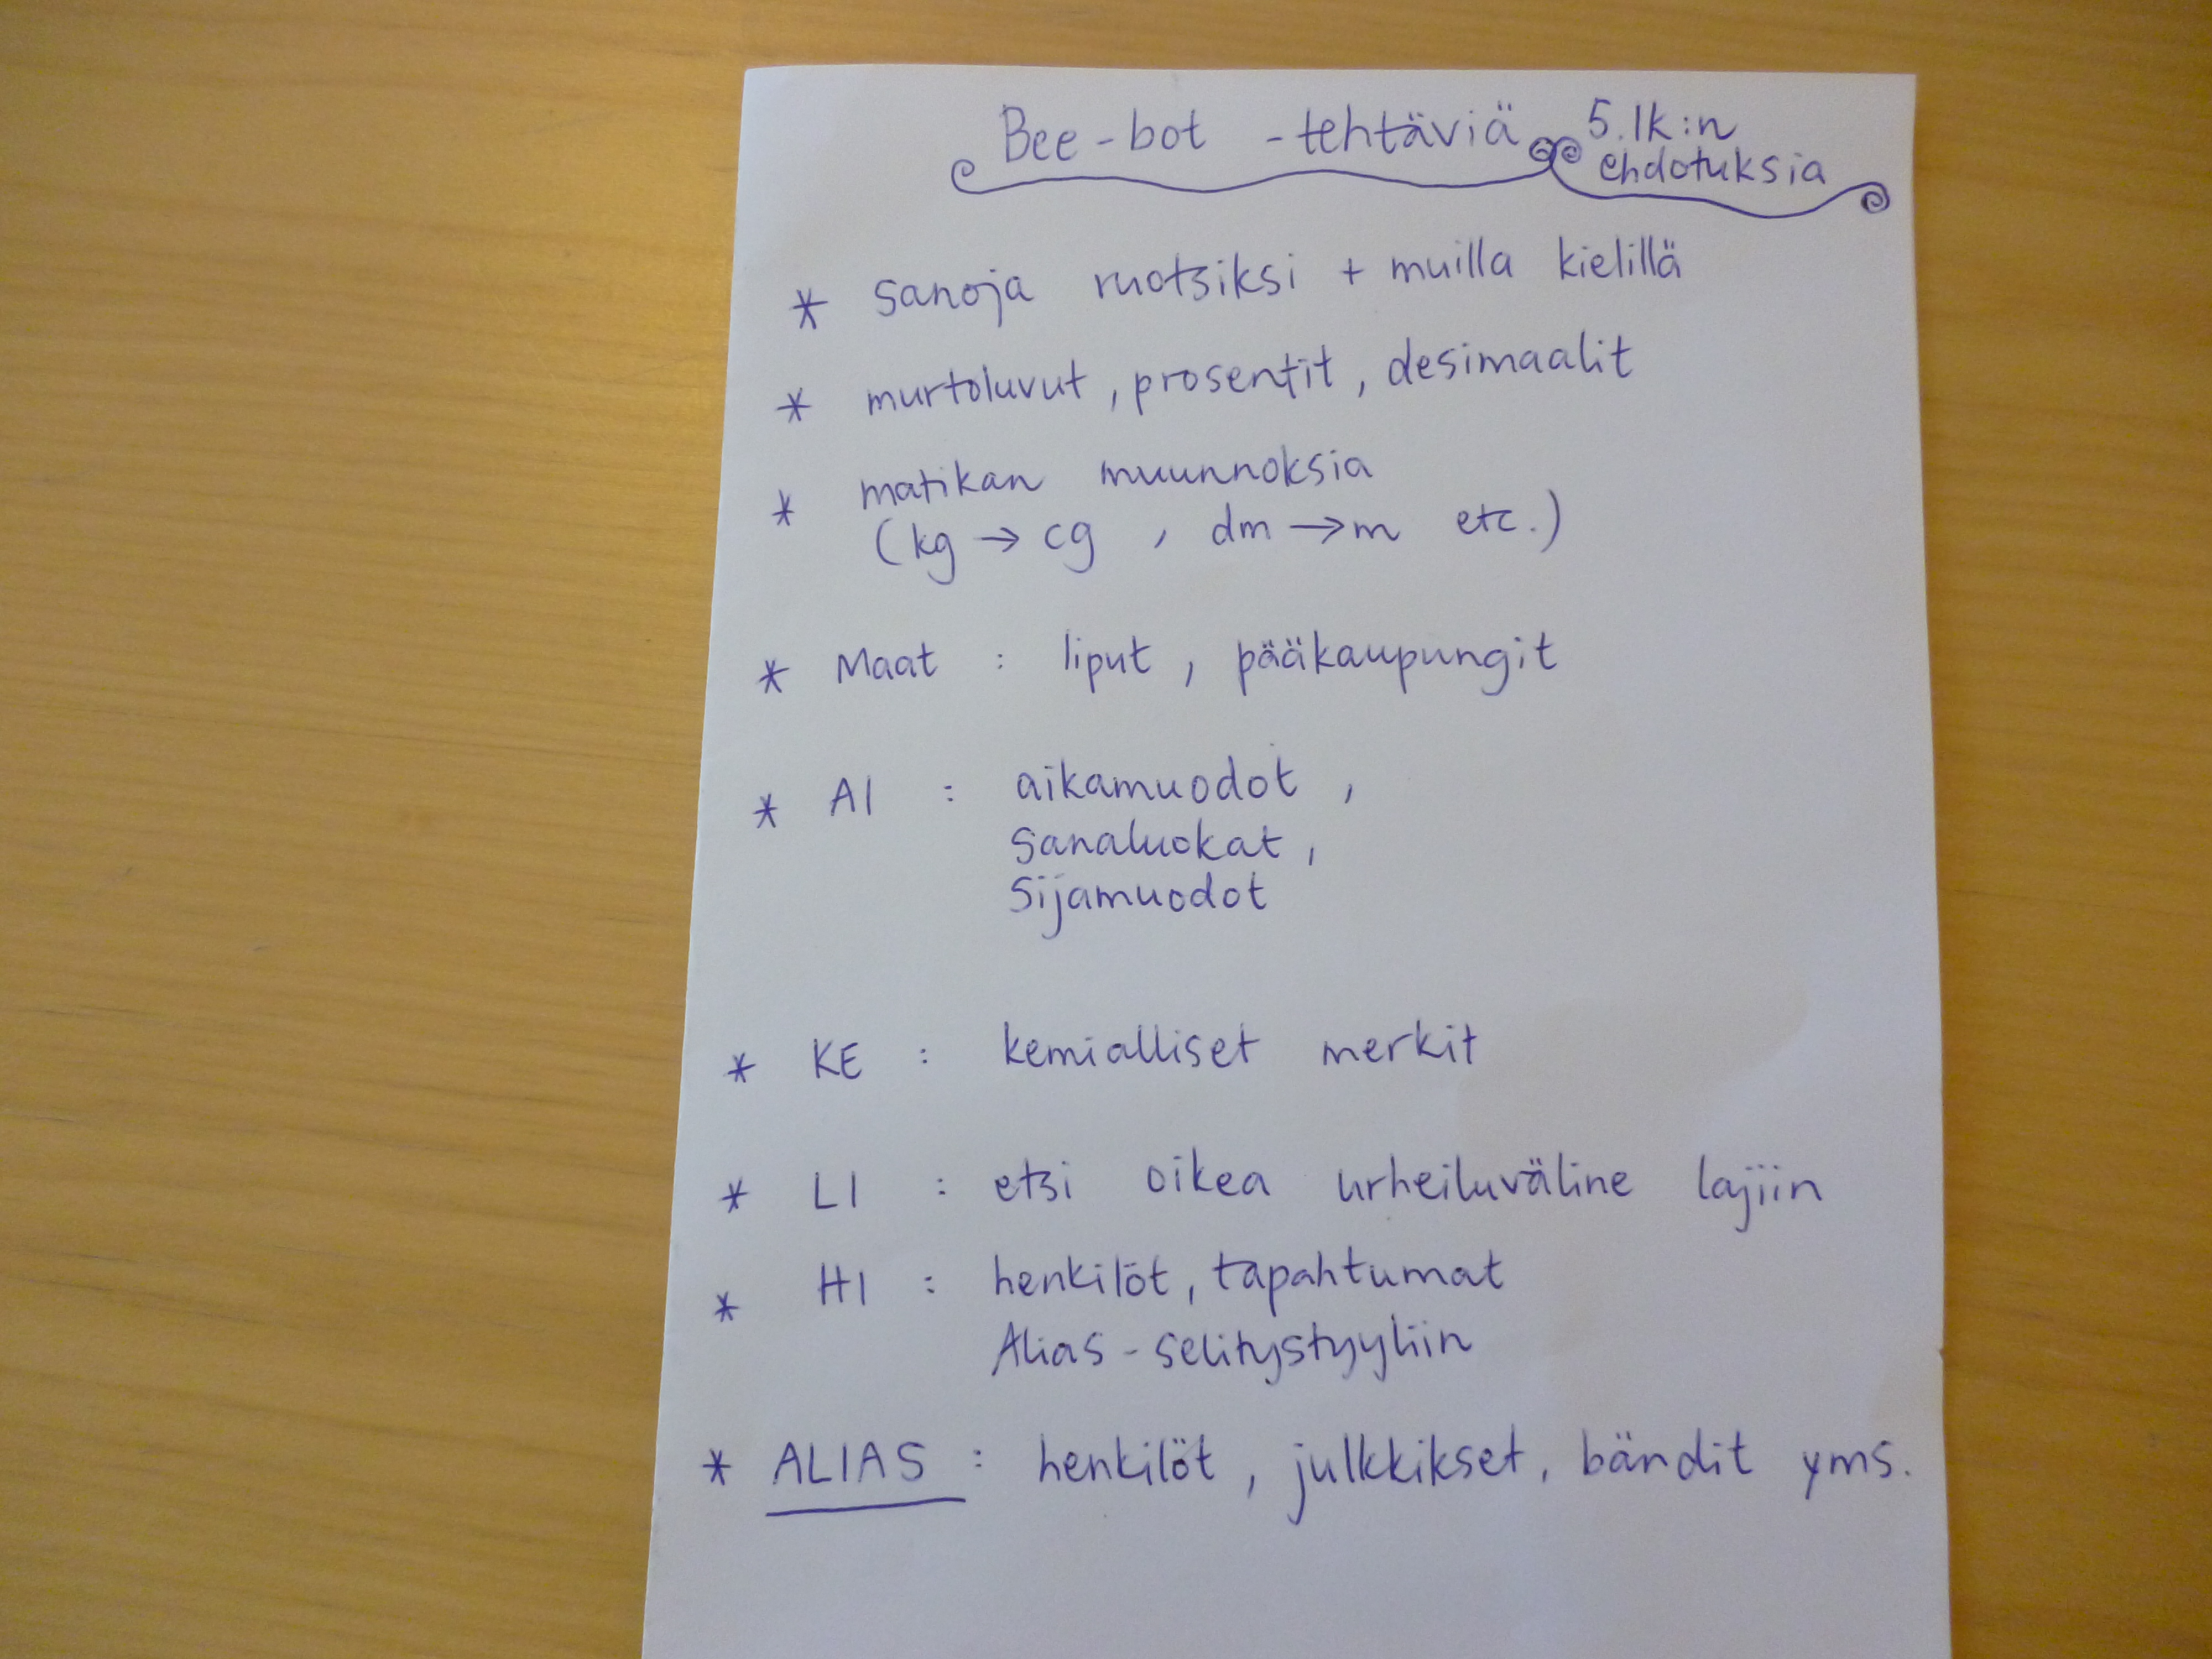 Bee-bot -tehtäviä 5.lk:n
ehdotuksia
* sanoja ruotsiksi + muilla kielillä
* murtoluvut, prosentit, desimaalit
* matikan muunnoksia
(kg → cg , dm → m etc.)
* Maat : liput , pääkaupungit
* AI : aikamuodot ,
sanaluokat ,
sijamuodot
* KE : kemialliset merkit
* LI : etsi oikea urheiluväline lajiin
* HI : henkilöt, tapahtumat
Alias-selitystyyliin
* ALIAS : henkilöt , julkkikset, bändit yms.